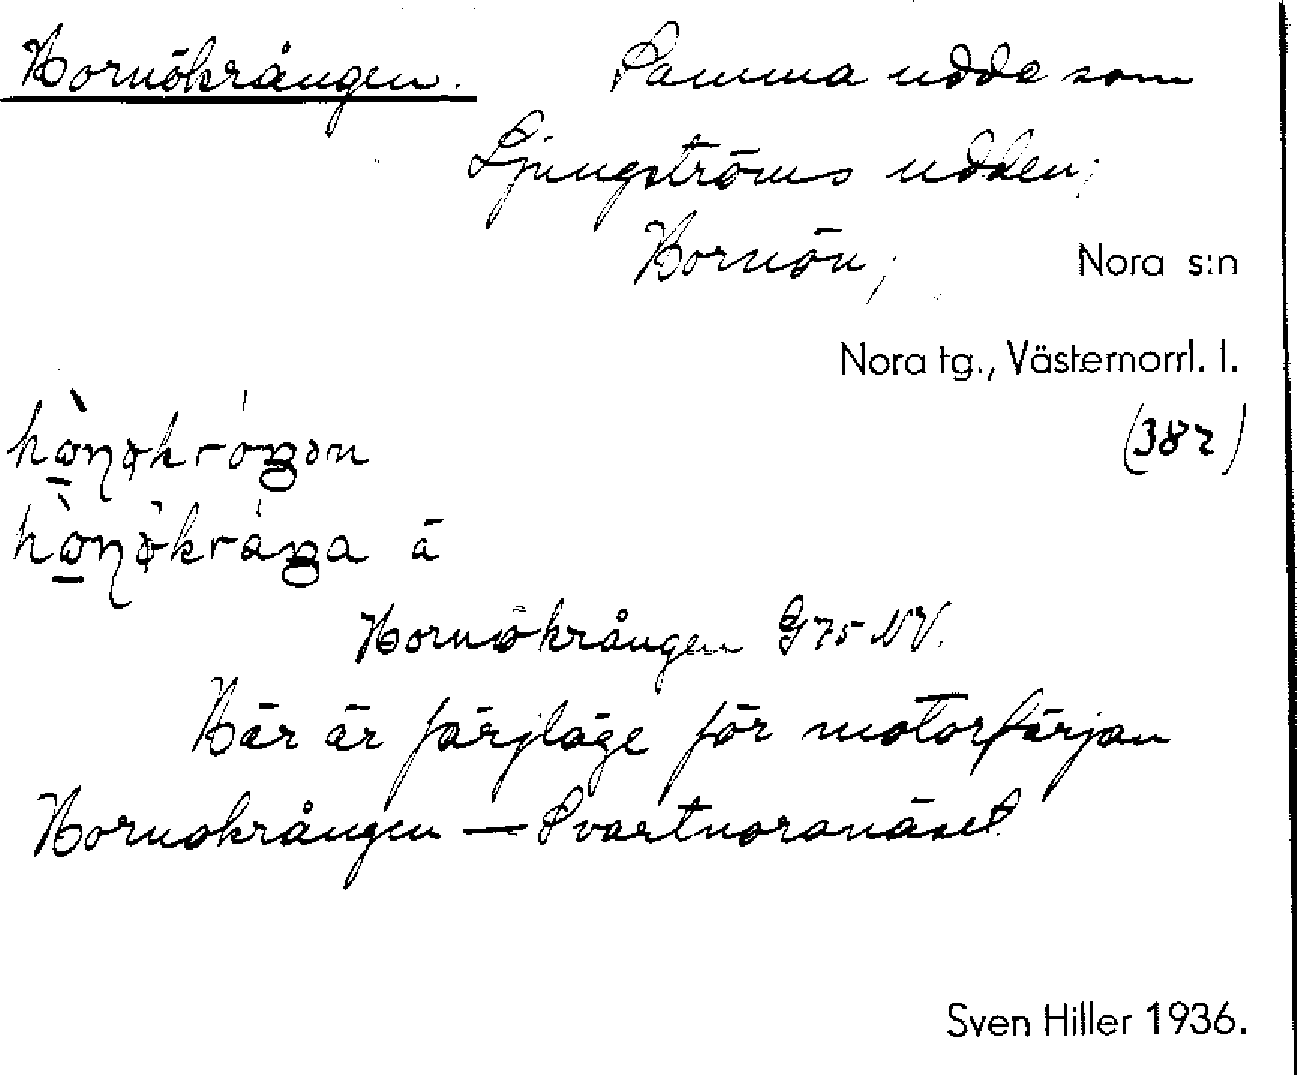 Hornökrången. Samma udde som
Ljungströms udden;
Hornön; Nora s:n
Nora tg., Västernorrl. l.
(382)
Hornökrången G75 NV.
Här är färjläge för motorfärjan
Hornökrången — Svartnoranäset
Sven Hiller 1936.